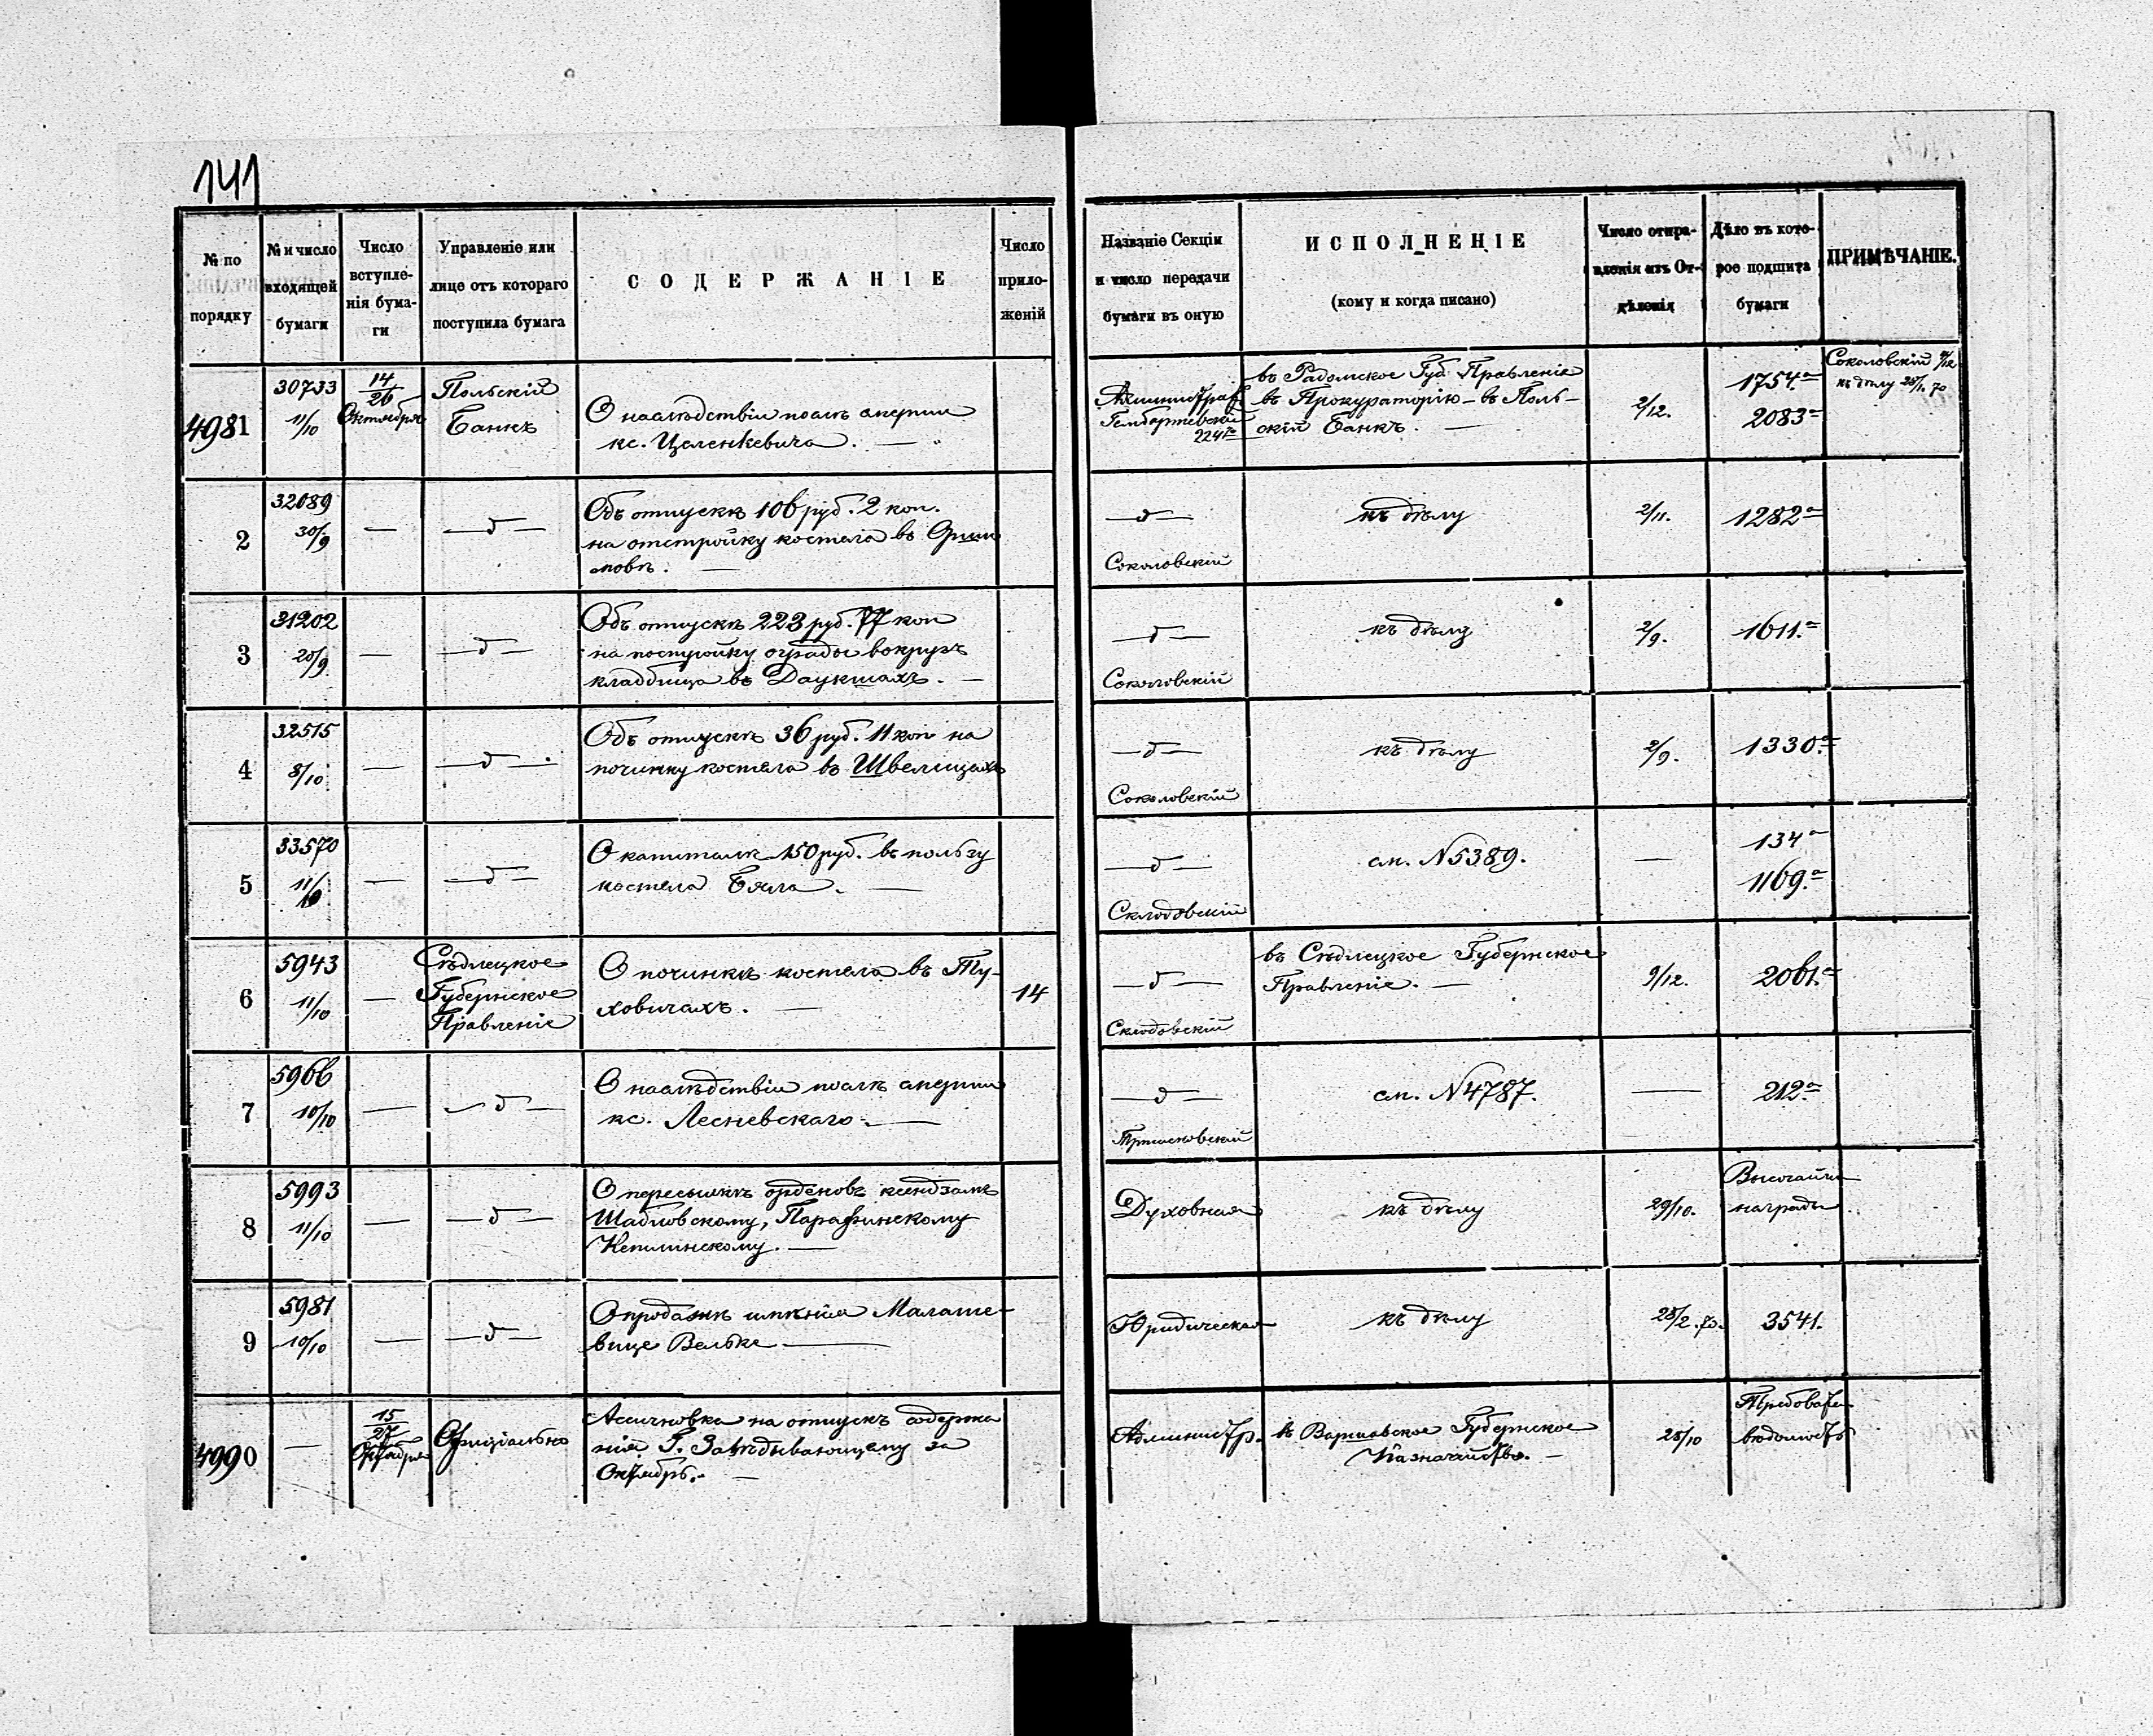 141
№ по порядку
№ и число входящей бумаги
Число вступле-нія бума-ги
Управленіе или лице отъ котораго поступила бумага
СОДЕРЖАНІЕ
Число прило-женій
Названіе Секціи и число передачи бумаги въ оную
ИСПОЛНЕНІЕ
(кому и когда писано)
Число отпра-вленія изъ От-дѣленія
Дѣло въ кото-рое подшита бумаги
ПРИМѢЧАНІЕ.
4981
30733
11/10
14/26 Октября
Польскій
Банкъ
О наслѣдствіи послѣ смерти
кс. Целенкевича. —
въ Радомское Губ Правленіе
въ Прокураторію – въ Поль-
скій Банкъ. —
2/12.
1754.а
2083а
Соколовскій 9/12
къ дѣлу
2
32089
30/9
—
—д—
Объ отпускѣ 106 руб. 2 коп.
на отстройку костела въ
—д—
Соколовскій
къ дѣлу
2/11.
1282а
3
31202
20/9
—
—д—
Объ отпускѣ 223 руб. 77 коп
на постройку ограды вокругъ
кладбища въ Даукшахъ. —
—д—
Соколовскій
къ дѣлу
2/9.
1611.а
4
32515
8/10
—
—д—
Объ отпускѣ 36 руб. 11 коп на
починку костела въ Швелицахъ
—д—
Соколовскій
къ дѣлу
2/9.
1330.а
5
33570
11/10
—
—д—
О капиталѣ 150 руб. въ пользу
костела Бяла. —
—д—
Склодовскій
см. № 5389.
—
134а
1169.а
6
5943
11/10
—
Сѣдлецкое
Губернское
Правленіе
О починкѣ костела въ Ту-
ховичахъ. —
14
—д—
Склодовскій
въ Сѣдлецкое Губернское
Правленіе. —
9/12.
2061.а
7
5966
10/10
—
—д—
О наслѣдствіи послѣ смерти
кс. Лесневскаго. —
—д—
см. № 4787.
—
212.а
8
5993
11/10
—
—д—
О пересылкѣ орденовъ ксендзамъ
Шадловскому, Парафинскому
—
Духовная
къ дѣлу
29/10.
награды
9
5981
10/10
—
—д—
О продажѣ имѣнія Малаше-
вице Вельке —
Юридическая
къ дѣлу
28/2.70.
3541.
4990
—
15/27 Октября
Ассигновка на отпускъ содержа
нія Г. Завѣдывающему за
Октябрь. —
Администр.
въ Варшавское Губернское
Казначейство. —
28/10
Требоват.
вѣдомость